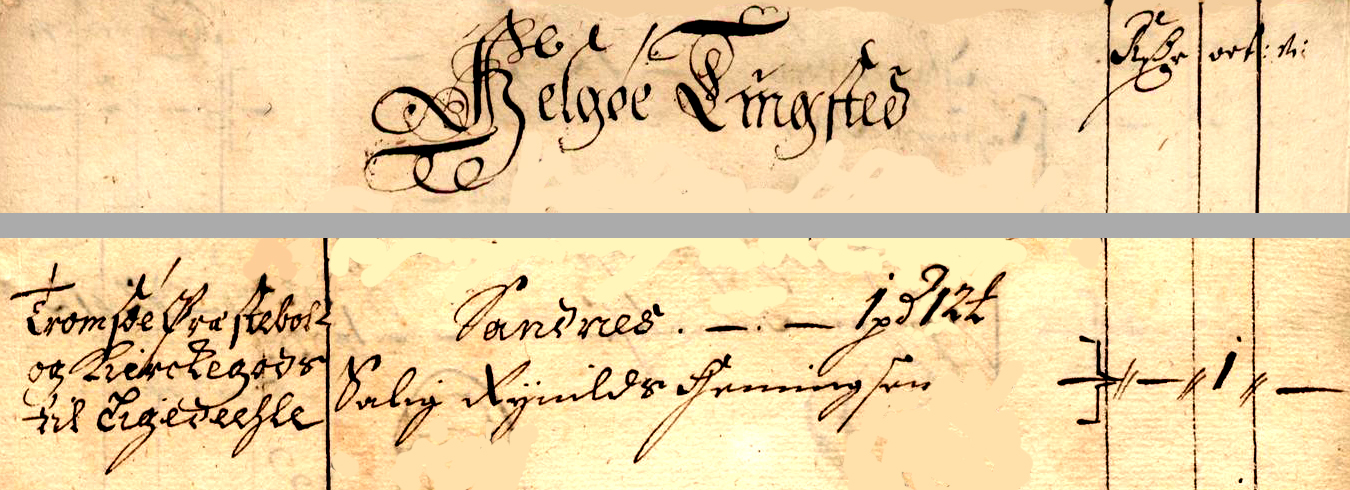 Helgøe Tingsted
Rdlr ort: s:
Tromsøe Præstebol
og Kierckegods
til Ligedeehle
Sandnes . — . — 1 pd 12
Salig Rynilds Hemingsen
— " — " 1 " —